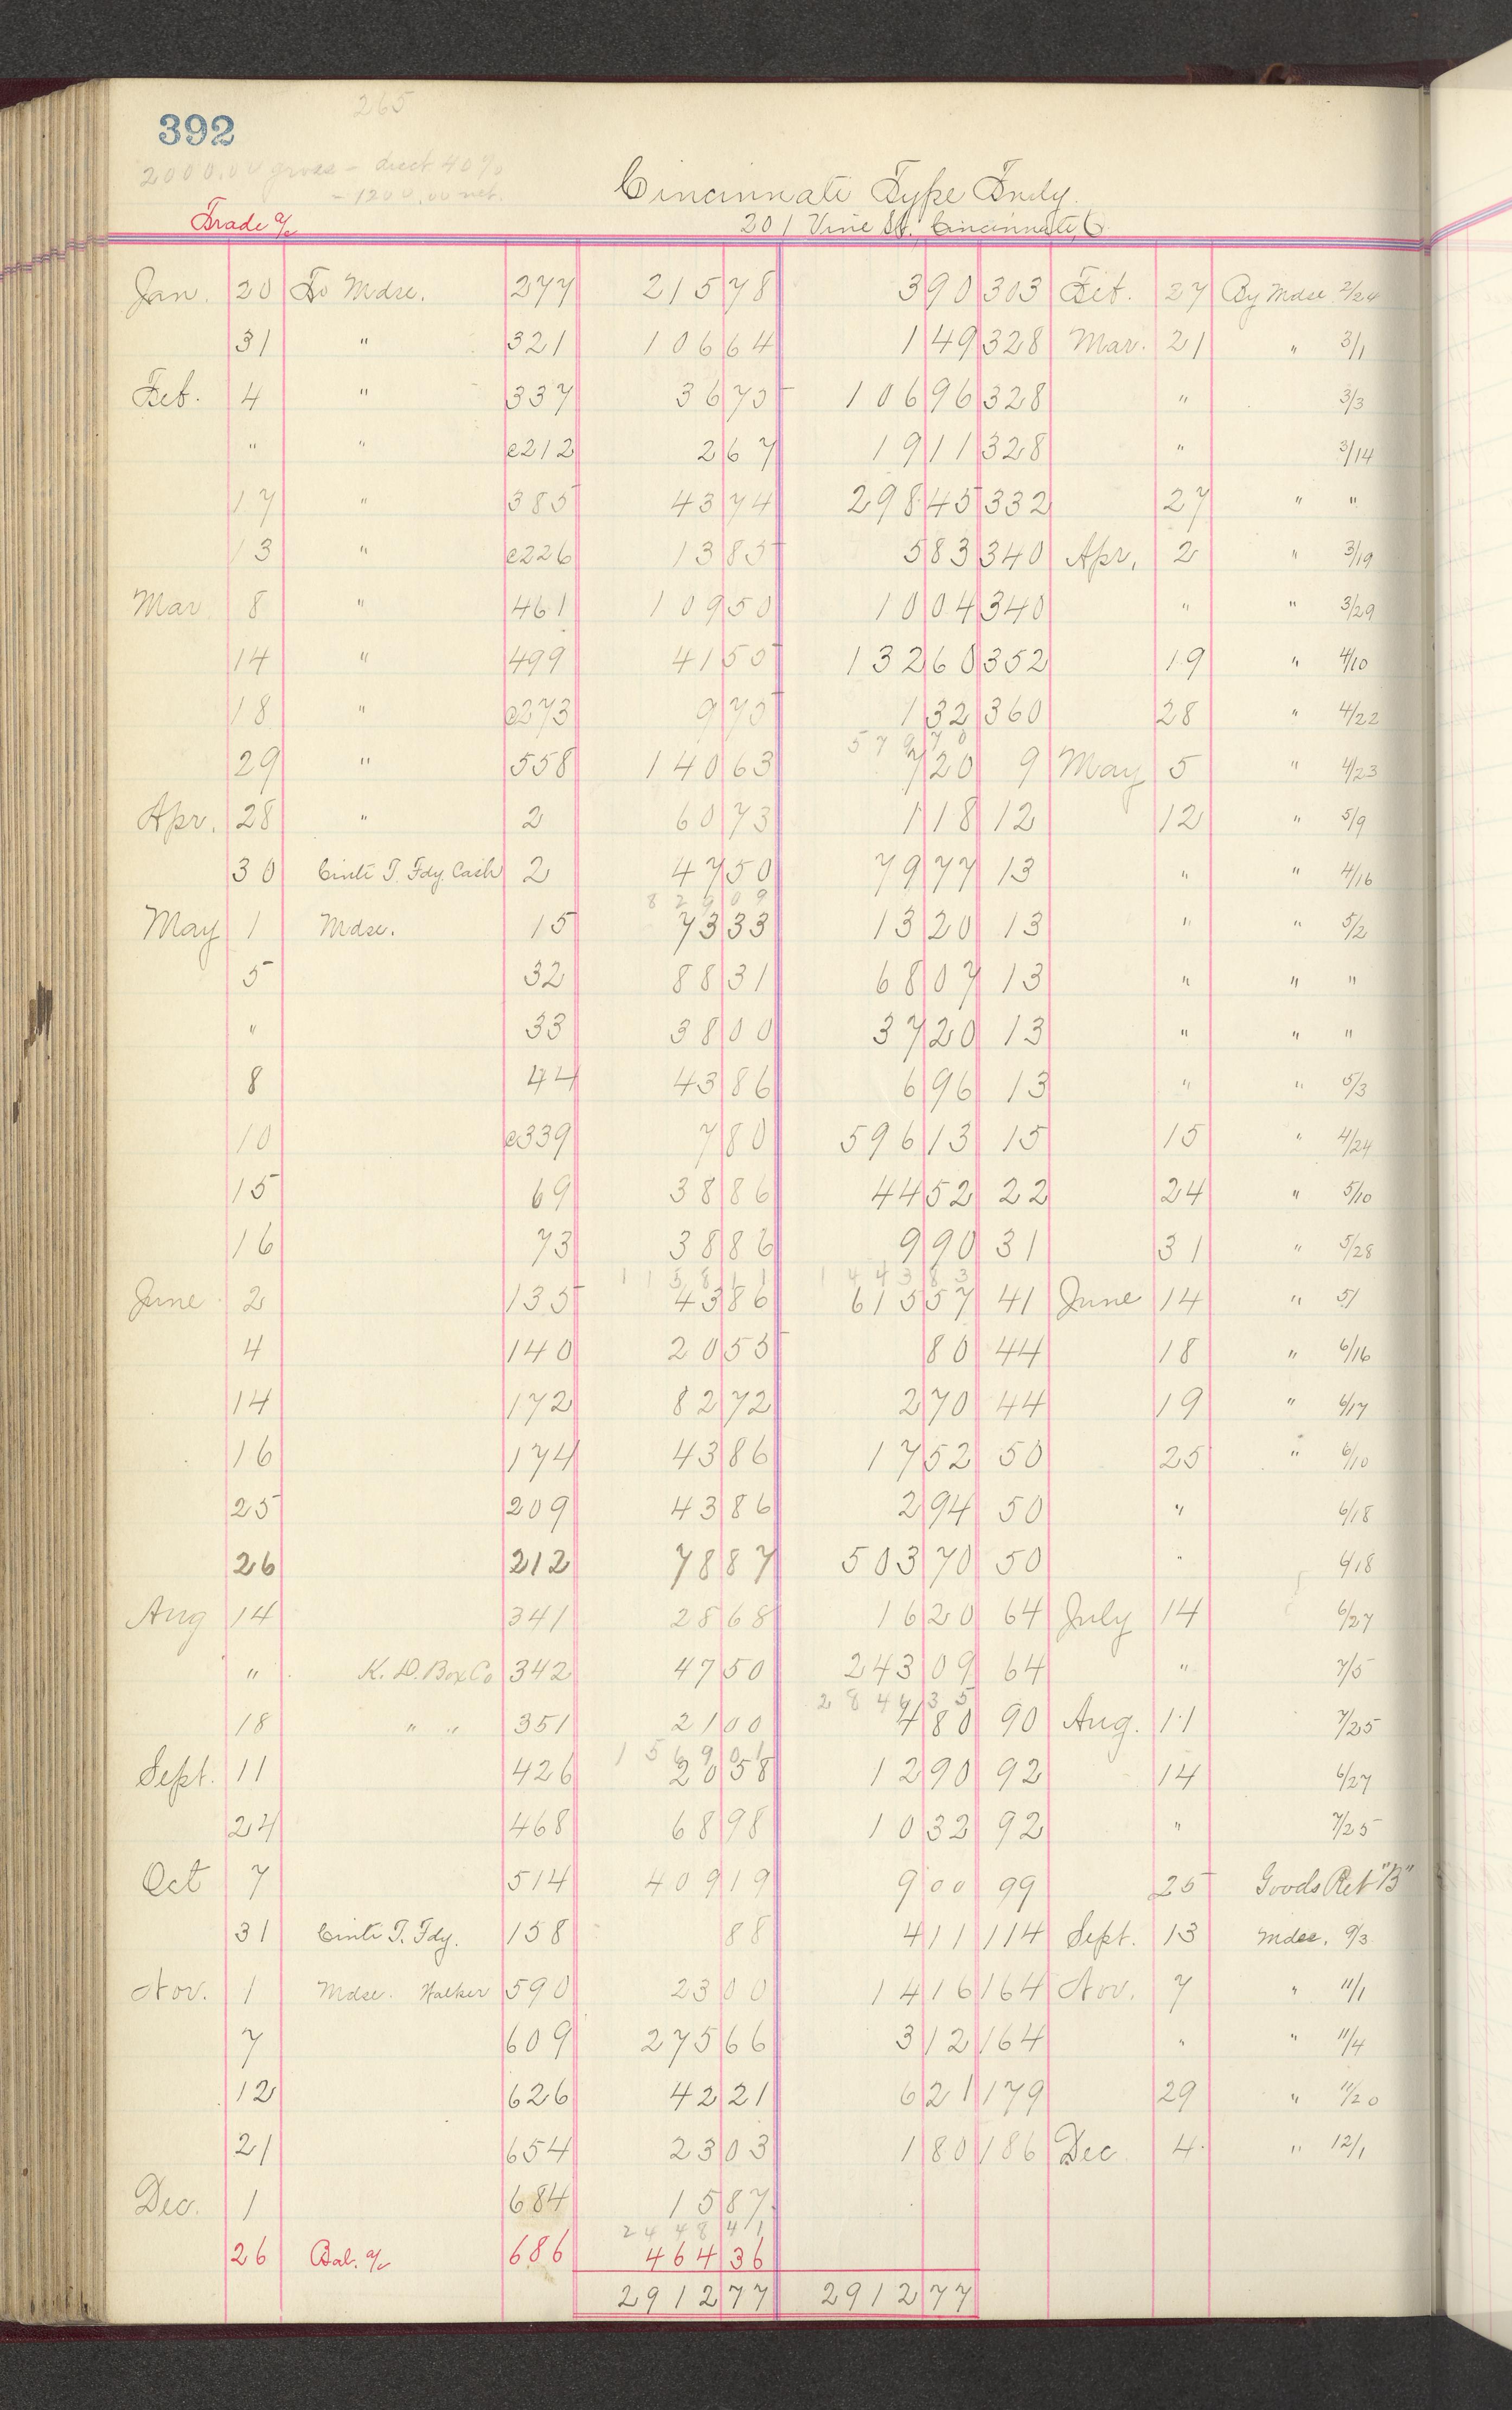 392
265
2000.00 gross - disct 40%
- 1200.00 net.
Cincinnati Type Fndy.
Trade a/c
201 Vine St., Cincinnati, O
Jan. 20 To Mdse. 277 215 78 3 90 303 Feb. 27 By Mdse 2/24
31 " 321 106 64 1 49 328 Mar. 21 " 3/1
Feb. 4 " 337 36 75 106 96 328 " 3/3
" " e212 2 67 19 11 328 " 3/14
17 " 385 43 74 298 45 332 27 " "
13 " e226 13 85 5 83 340 Apr. 2 " 3/19
Mar 8 " 461 109 50 10 04 340 " " 3/29
14 " 499 41 50 132 60 352 19 " 4/10
18 " e273 9 75 1 32 360 28 " 4/22
579 78
29 " 558 140 63 7 20 9 May 5 " 4/23
Apr. 28 " 2 60 73 1 18 12 12 " 5/9
30 Cinti T. Fdy. Cash 2 47 50 79 77 13 " " 4/16
829 09
May 1 Mdse. 15 73 33 13 20 13 " " 5/2
5 32 88 31 68 07 13 " " "
" 33 38 00 37 20 13 " " "
8 44 43 86 6 96 13 " " 5/3
10 e339 7 80 596 13 15 15 " 4/24
15 69 38 86 44 52 22 24 " 5/10
16 73 38 86 9 90 31 31 " 5/28
1158 11 1443 83
June 2 135 43 86 615 57 41 June 14 " 5/
4 140 20 55 80 44 18 " 6/16
14 172 82 72 2 70 44 19 " 6/17
16 174 43 86 17 52 50 25 " 6/10
25 209 43 86 2 94 50 " 6/18
26 212 78 87 503 70 50 " 6/18
Aug 14 341 28 68 16 20 64 July 14 6/27
" K. D. Box Co 342 47 50 243 09 64 " 7/5
2844 35
18 " " 351 21 00 4 80 90 Aug. 11 7/25
1569 01
Sept. 11 426 20 58 12 90 92 14 6/27
24 468 68 98 10 32 92 " 7/25
Oct 7 514 409 19 9 00 99 25 Goods Ret "B"
31 Cinti T. Fdy. 158 88 4 11 114 Sept. 13 Mdse. 9/3
Nov. 1 Mdse. Walker 590 23 00 14 16 164 Nov. 7 " 11/1
7 609 275 66 3 12 164 " " 11/4
12 626 42 21 6 21 179 29 " 11/20
21 654 23 03 1 80 186 Dec 4 " 12/1
Dec. 1 684 15 87
2448 41
26 Bal. a/c 686 464 36
2912 77 2912 77